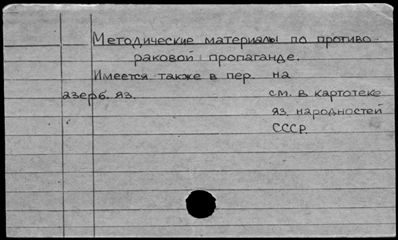 Методические материалы по противо-
раковой пропаганде.
Имеется также в пер. на
азерб. яз. см. в картотеке
яз. народностей
СССР.